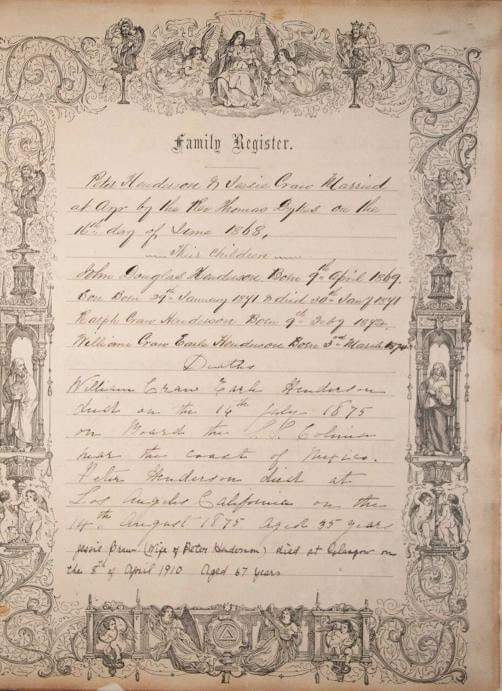 Family Register.
Peter Henderson & Jessie Craw Married
at Ayr by the Rev Thomas Dykes on the
16th day of June 1868.
Their Children
John Douglas Henderson Born 9th April 1869.
Son Born 29th January 1871 & died 30th Jany 1871
Ralph Craw Henderson Born 9th Feby
William Craw Earle Henderson Born 3rd March 1874
Deaths
William Craw Earle Henderson
died on the 14th July 1875
on Board the S.S. Colima
near the coast of Mexico.
Peter Henderson died at
Los Angeles California on the
14th August 1875 Aged 35 years
Jessie Craw (Wife of Peter Henderson) died at Glasgow on
the 8th of April 1910 Aged 67 years